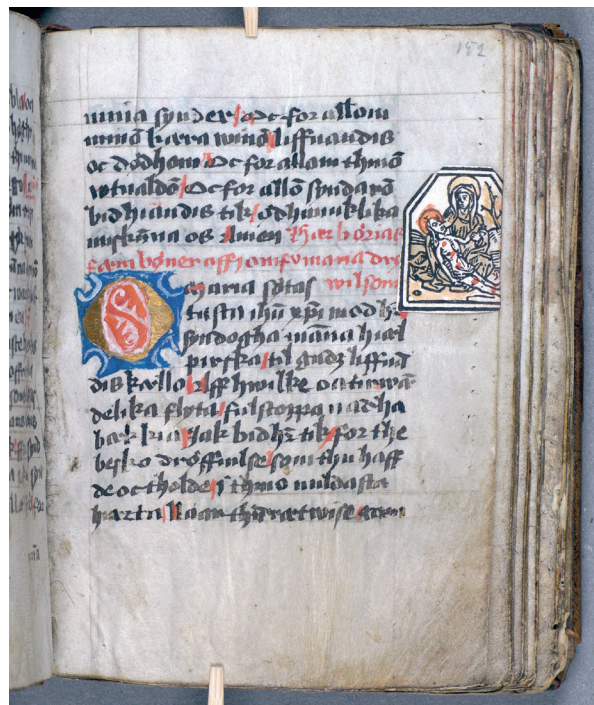 182
minia synder Oc for allom
minō kæra winō liffuandis
oc dödhom Oc for allom thmō
vtualdō Oc for allō syndarō
bidhiandis tik ödhmiuklika
miskūna os Amen Hær börias
fæm böner aff iomfruna dro
maria sötas wilsom
tasta ihū xpi modhr
syndogha māna hiæl
pirska til gudz liffuā
dis kælla Aff hwilke oatirwā
delika flyta fulstoppa nadha
bækkia Jak bidhr tik for the
besko dröffuilse som thu haff
de oc tholde i thino mildasta
hærta